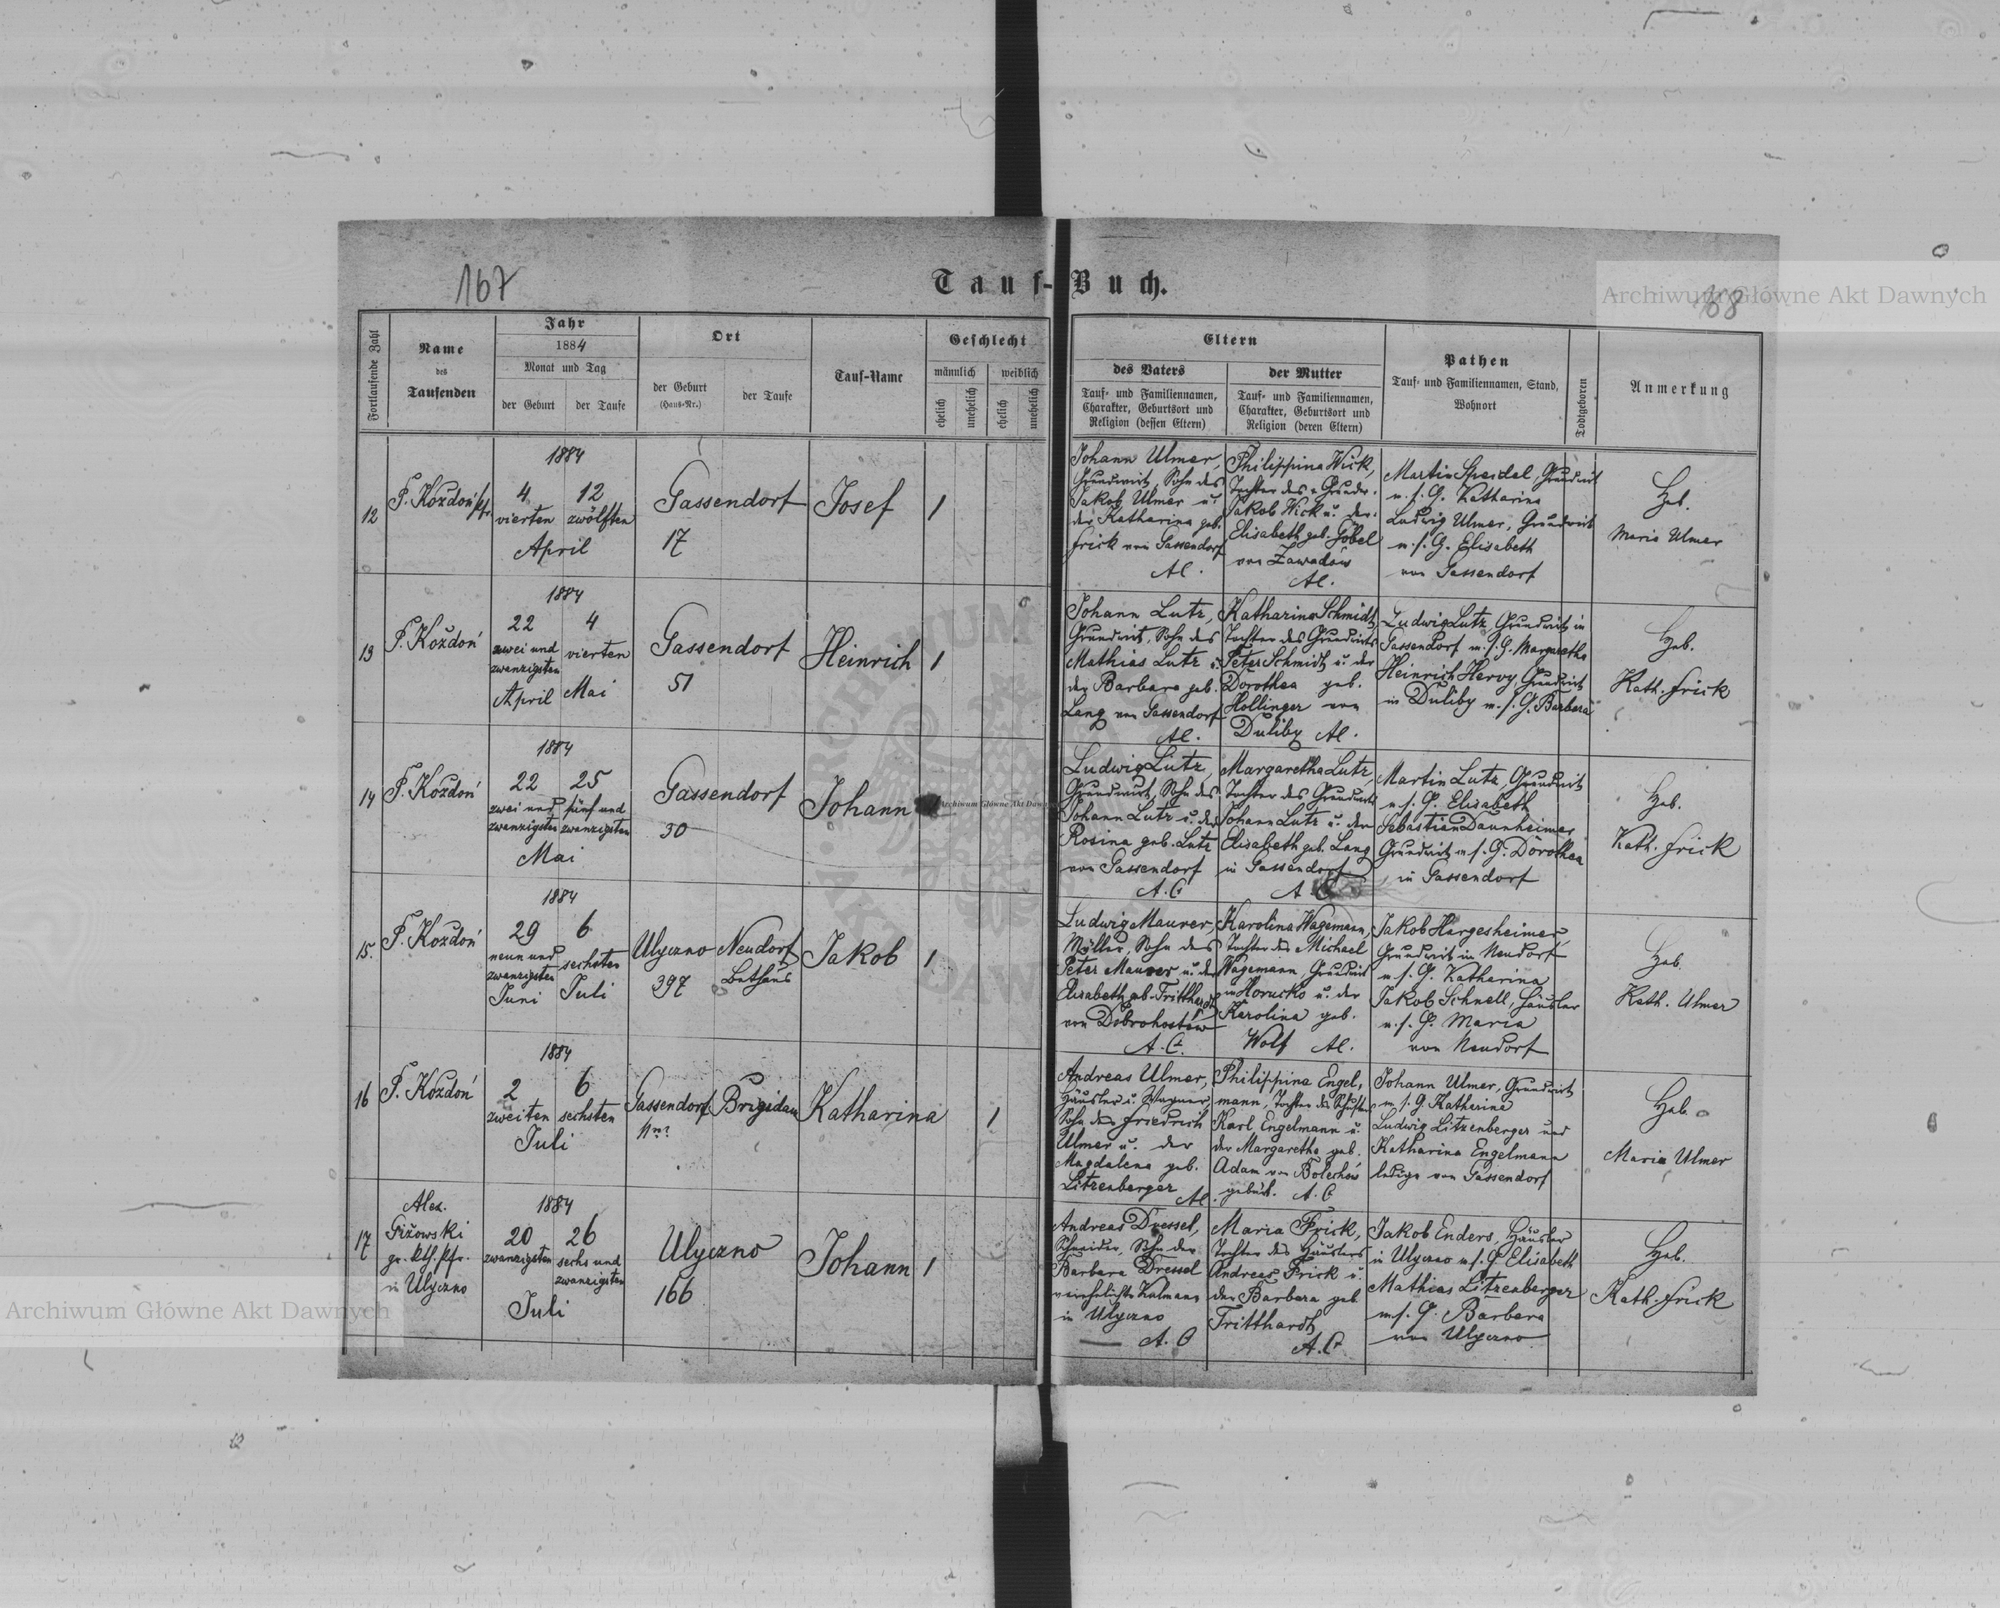 167
Tauf-Buch.
168
Archiwum Główne Akt Dawnych
Fortlaufende Zahl
Name
des
Taufenden
Jahr
1884
Monat und Tag
der Geburt
der Taufe
Ort
der Geburt
(Haus-Nr.)
der Taufe
Tauf-Name
Geschlecht
männlich
weiblich
ehelich
unehelich
ehelich
unehelich
Eltern
des Vaters
Tauf- und Familiennamen,
Charakter, Geburtsort und
Religion (dessen Eltern)
der Mutter
Tauf- und Familiennamen,
Charakter, Geburtsort und
Religion (deren Eltern)
Pathen
Tauf- und Familiennamen, Stand,
Wohnort
Todtgeboren
Anmerkung
12
F. Kozdoń Pfr.
1884
4
vierten
12
zwölften
April
Gassendorf
17
Josef
1
Johann Ulmer,
Grundwirt, Sohn des
Jakob Ulmer u.
der Katharina geb.
Frick von Gassendorf
AC.
Philippina Wick,
Tochter des Grundw.
Jakob Wick u. der
Elisabeth geb. Göbel
von Zawadów
AC.
Martin Speidel, Grundwirt
u. s. G. Katharina
Ludwig Ulmer, Grundwirt
u. s. G. Elisabeth
von Gassendorf
Heb.
Maria Ulmer
13
F. Kozdoń
1884
22
zwei und
zwanzigsten
April
4
vierten
Mai
Gassendorf
51
Heinrich
1
Johann Lutz,
Grundwirt, Sohn des
Mathias Lutz u.
der Barbara geb.
Lang von Gassendorf
AC.
Katharina Schmidt,
Tochter des Grundwirts
Peter Schmidt u. der
Dorothea geb.
Hollinger von
Duliby AC.
Ludwig Lutz, Grundwirt in
Gassendorf u. s. G. Margaretha
Heinrich Hervy, Grundwirt
in Duliby u. s. G. Barbara
Heb.
Kath. Frick
14
F. Kozdoń
1884
22
zwei und
zwanzigsten
25
fünf und
zwanzigsten
Mai
Gassendorf
30
Johann
Archiwum Główne Akt Dawnych
Ludwig Lutz,
Grundwirt, Sohn des
Johann Lutz u. der
Rosina geb. Lutz
von Gassendorf
A. C
Margaretha Lutz
Tochter des Grundwirts
Johann Lutz u. der
Elisabeth geb. Lang
in Gassendorf
A C
Martin Lutz Grundwirt
u. s. G. Elisabeth
Sebastian Daunheimer
Grundwirt u. s. G. Dorothea
in Gassendorf
Heb.
Kath. Frick
15.
F. Kozdoń
1884
29
neun und
zwanzigsten
Juni
6
sechsten
Juli
Ulyczno
397
Neudorf
Bethaus
Jakob
1
Ludwig Maurer,
Müller, Sohn des
Peter Maurer u. der
Elisabeth geb. Tritthardt
von Dobrohostów
A. C.
Karolina Wagemann,
Tochter des Michael
Wagemann, Grundwirt
in Horucko u. der
Karolina geb.
Wolf AC.
Jakob Hargesheimer,
Grundwirt in Neudorf
u. s. G. Katharina
Jakob Schnell, Häusler
u. s. G. Maria
von Neudorf
Heb.
Kath. Ulmer
16
F. Kozdoń
1884
2
zweiten
6
sechsten
Juli
Gassendorf
Brigidau
Katharina
1
Andreas Ulmer,
Häusler u. Wagner,
Sohn des Friedrich
Ulmer u. der
Magdalena geb.
Litzenberger AC.
Philippina Engel-
mann, Tochter des Schusters
Karl Engelmann u.
der Margaretha geb.
Adam von Bolechów
gebürt. A. C
Johann Ulmer, Grundwirt
u. s. G. Katharina
Ludwig Litzenberger und
Katharina Engelmann
ledige von Gassendorf
Heb.
Maria Ulmer
17
Alex.
Giżowski
gr. kth. Pfr.
in Ulyczno
1884
20
zwanzigsten
26
sechs und
zwanzigsten
Juli
Ulyczno
166
Johann
1
Andreas Dressel,
Schneider, Sohn der
Barbara Dressel
verehelichte Kulmann
in Ulyczno
A. C
Maria Frick,
Tochter des Häuslers
Andreas Frick u.
der Barbara geb.
Tritthardt
A. C.
Jakob Enders, Häusler
in Ulyczno u. s. G Elisabeth
Mathias Litzenberger
u. s. G. Barbara
von Ulyczno
Heb.
Kath. Frick
Archiwum Główne Akt Dawnych